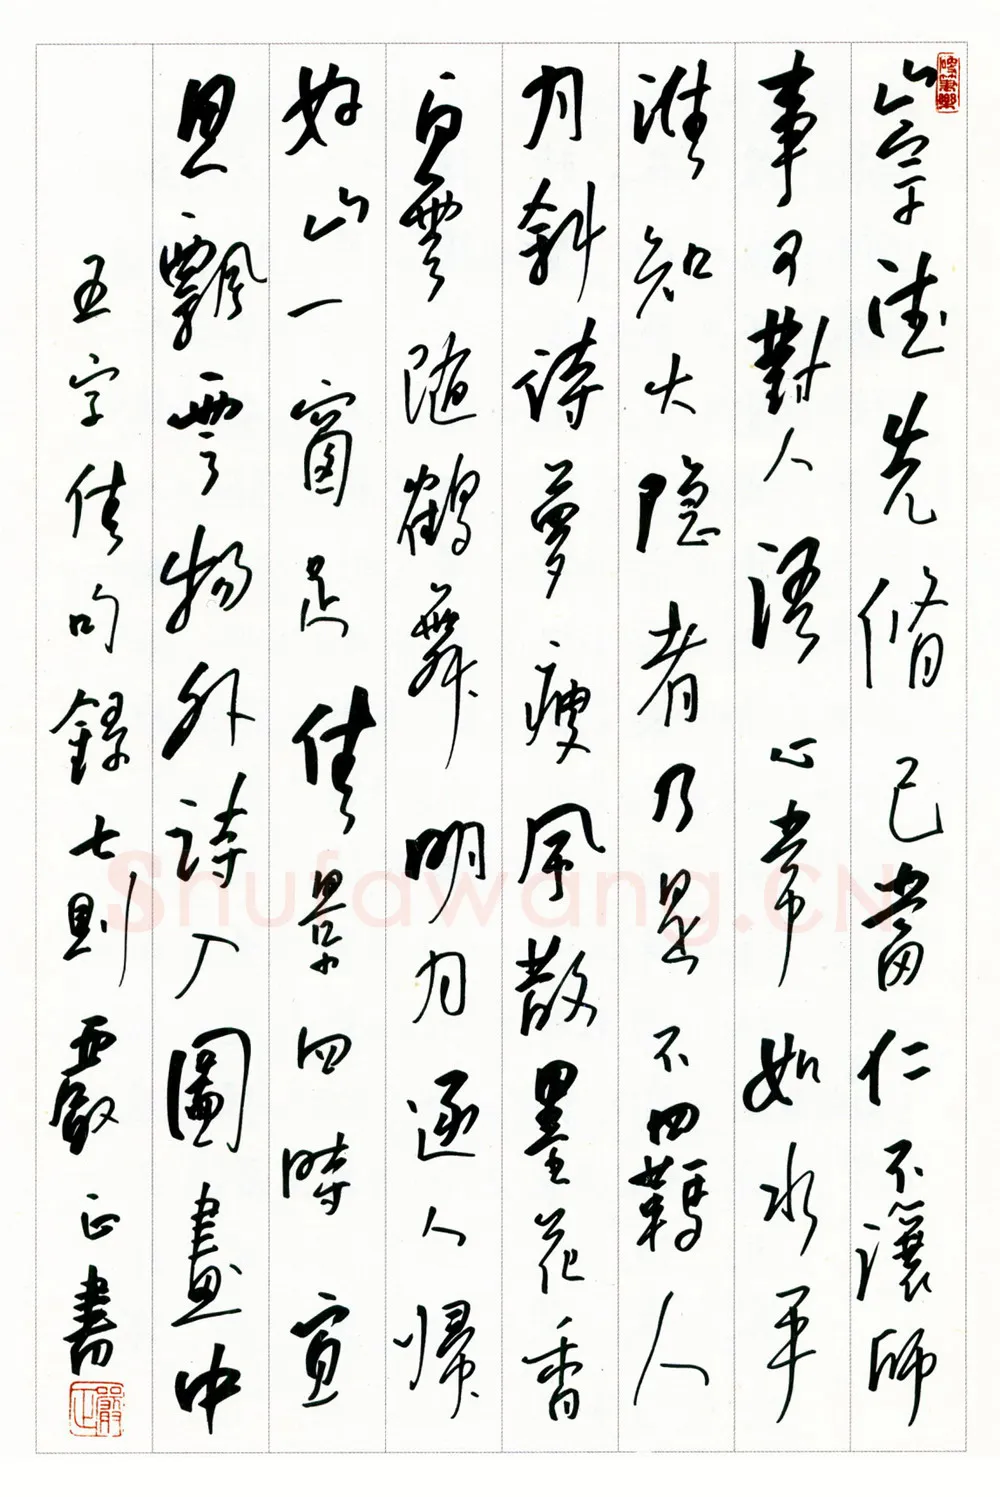 崇德先脩己當仁不讓師
事可對人語心常如水平
誰知大隐者乃是不羈人
月斜詩夢瘦風散墨花香
白雲随鶴舞明月逐人歸
好山一窗足佳景四時宜
思飄雲物外詩入圖畫中
五字佳句録七則嚴正書
嚴正
Shufawang.CN